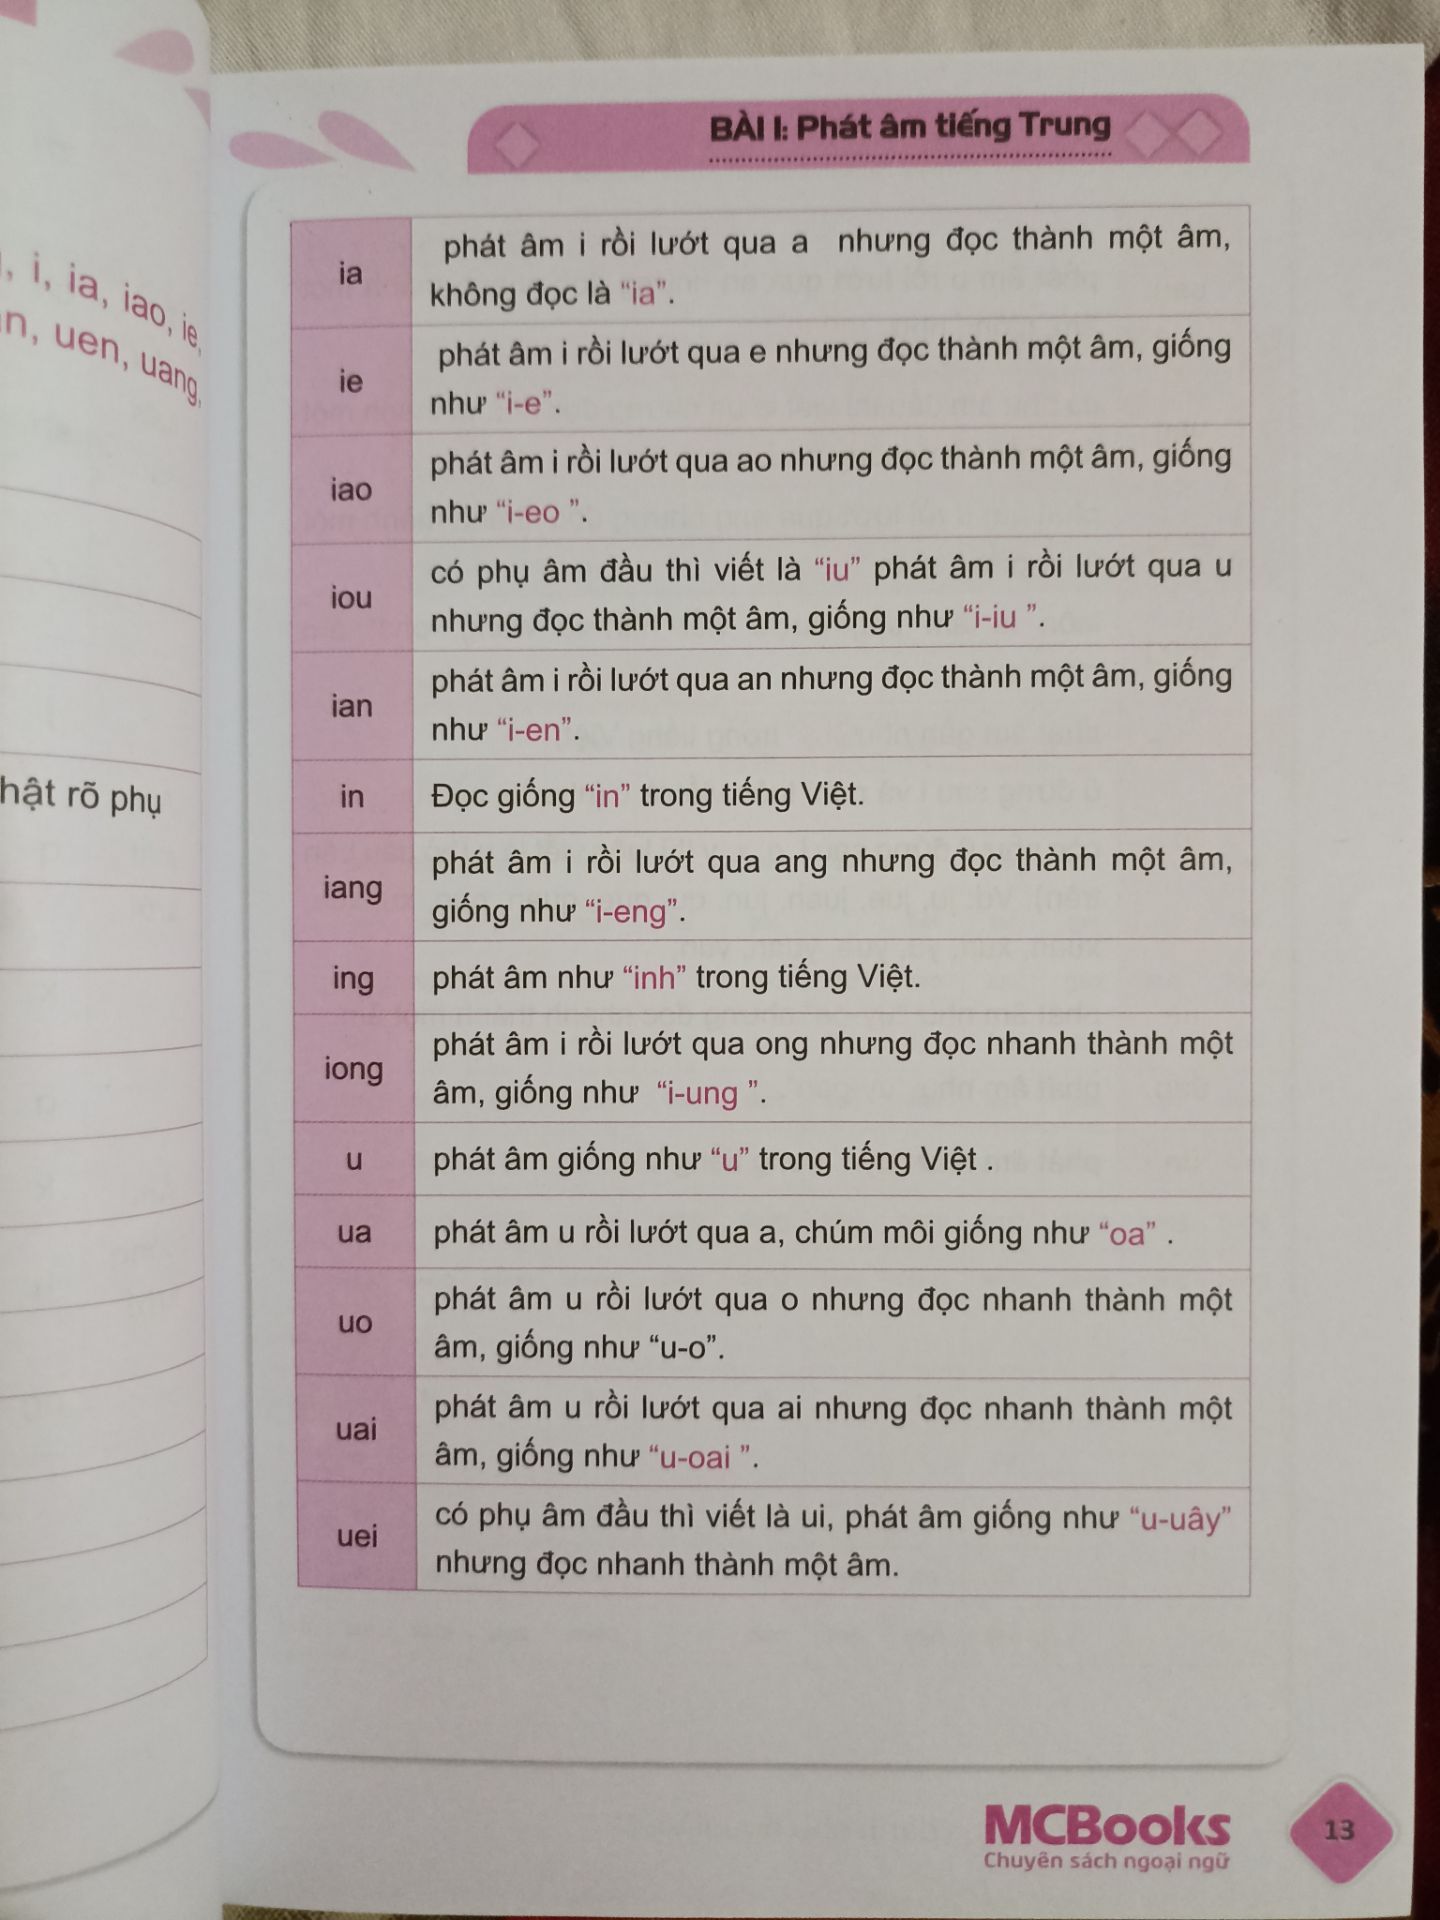 i, ia, iao, ie,
uen, uang,
hật rõ phụ
BÀI 1: Phát âm tiếng Trung
ia
phát âm i rồi lướt qua a nhưng đọc thành một âm,
không đọc là “ia”.
ie
phát âm i rồi lướt qua e nhưng đọc thành một âm, giống
như “i-e”.
iao
phát âm i rồi lướt qua ao nhưng đọc thành một âm, giống
như “i-eo ”.
iou
có phụ âm đầu thì viết là “iu” phát âm i rồi lướt qua u
nhưng đọc thành một âm, giống như “i-iu ”.
ian
phát âm i rồi lướt qua an nhưng đọc thành một âm, giống
như “i-en”.
in
Đọc giống “in” trong tiếng Việt.
iang
phát âm i rồi lướt qua ang nhưng đọc thành một âm,
giống như “i-eng”.
ing
phát âm như “inh” trong tiếng Việt.
iong
phát âm i rồi lướt qua ong nhưng đọc nhanh thành một
âm, giống như “i-ung ”.
u
phát âm giống như “u” trong tiếng Việt .
ua
phát âm u rồi lướt qua a, chúm môi giống như “oa” .
uo
phát âm u rồi lướt qua o nhưng đọc nhanh thành một
âm, giống như “u-o”.
uai
phát âm u rồi lướt qua ai nhưng đọc nhanh thành một
âm, giống như “u-oai ”.
uei
có phụ âm đầu thì viết là ui, phát âm giống như “u-uây”
nhưng đọc nhanh thành một âm.
MCBooks
Chuyên sách ngoại ngữ
13